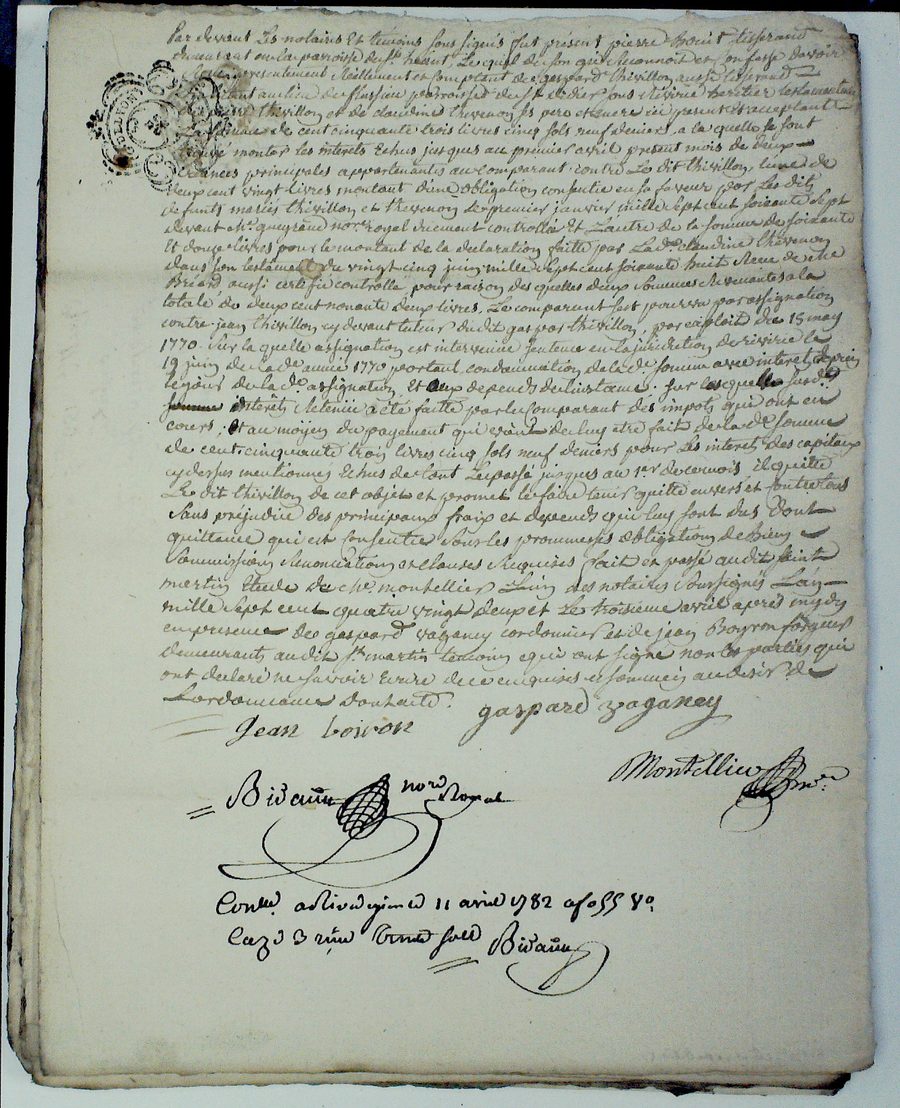 Par devant Les notaires Et temoins sous signés fut présent pierre
demeurant en la paroisse de St. heant, Lequel de son gré reconnoit et confesse devoir
presentement Réellement et comptant de gaspard thivillon aussi tisserand
de St. didier sous Rivirie heritier testamentaire
thivillon et de claudine thevenon ses pere et mere ici present et acceptant
de cent cinquante trois livres cinq sols neuf deniers, a la quelle se sont
trouvé monter les interets Echus jusques au premier avril present mois de deux
créances principales appartenantes au comparant contre Le dit thivillon, l'une de
deux cent vingt livres montant d'une obligation consentie en sa faveur par Les dits
defunts mariés thivillon et thevenon Le premier janvier mille Sept cent soixante Sept
devant Me. gueyrand nore. royal duement controllée Et L'autre de la somme de soixante
Et douze livres pour le montant de la declaration faitte par La de. claudine thevenon
dans son testament du vingt cinq juin mille Sept cent soixante huit Recu de Me
Briard aussi certifié controllé pour raison des quelles deux sommes Revenantes a la
totale de deux cent nonante deux livres, Le comparant s'est pourvu par assignation
contre jean thivillon cy devant tuteur du dit gaspar thivillon, par exploit du 15 may
1770. Sur la quelle assignation est intervenue sentence en la jurisdiction de rivirie le
19 juin de la de. année 1770 portant condamnation de la de. somme avec interet depuis
le jour de la de. assignation, Et aux depends de l'instance. sur les quelles
interets Retenue a été faitte par le comparant des impots qui ont eu
cours, et au moyen du payement qui vient de luy etre fait de la de. somme
de cent cinquante trois livres cinq sols neuf deniers pour Les interets des capitaux
cy dessus mentionnés Echus de tout Le passé jusques au 1er. de ce mois il quitte
Le dit thivillon de cet objet et promet le faire tenir quitte envers et contre tous
Sans prejudice des principaux fraix et depends qui luy sont dus Dont
quittance qui est consentie sous les prommesses obligation de biens
Soumissions Renonciations et clauses Requises fait et passé au dit saint
martin Etude de Me. montellier L'un des notaires soussignés L'an
mille Sept cent quatre vingt deux et Le troisieme avril après mydy
en presence de gaspard vaganey cordonnier et de jean Boyron
demeurants au dit St. martin temoins qui ont signé non les parties qui
ont declaré ne savoir Ecrire de ce enquises et sommées au desir de
L'ordonnance Dont acte.
Jean boiron gaspard vaganey
Montellier nre.
Bidaun nore Royal
Conlle. a Rivedegier le 11 avril 1782 fo 55 Vo.
Bidaun